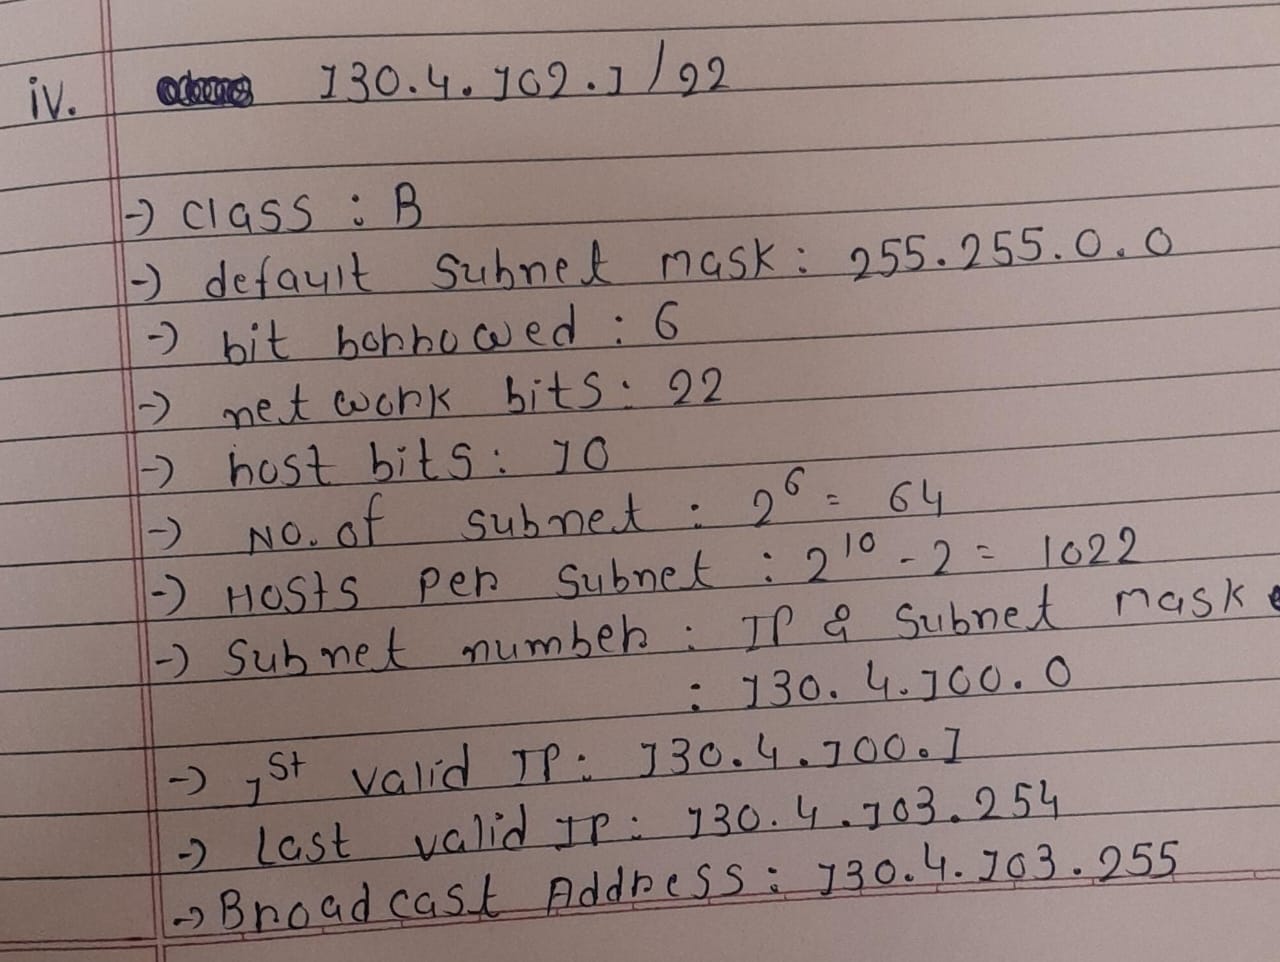 iv. 130.4.102.1/22
-> class : B
-> default subnet mask : 255.255.0.0
-> bit borrowed : 6
-> network bits : 22
-> host bits : 10
-> No. of subnet : 2^6 = 64
-> Hosts per subnet : 2^10 - 2 = 1022
-> Subnet number : IP & Subnet mask
: 130.4.100.0
-> 1st valid IP : 130.4.100.1
-> Last valid IP : 130.4.103.254
-> Broadcast Address : 130.4.103.255